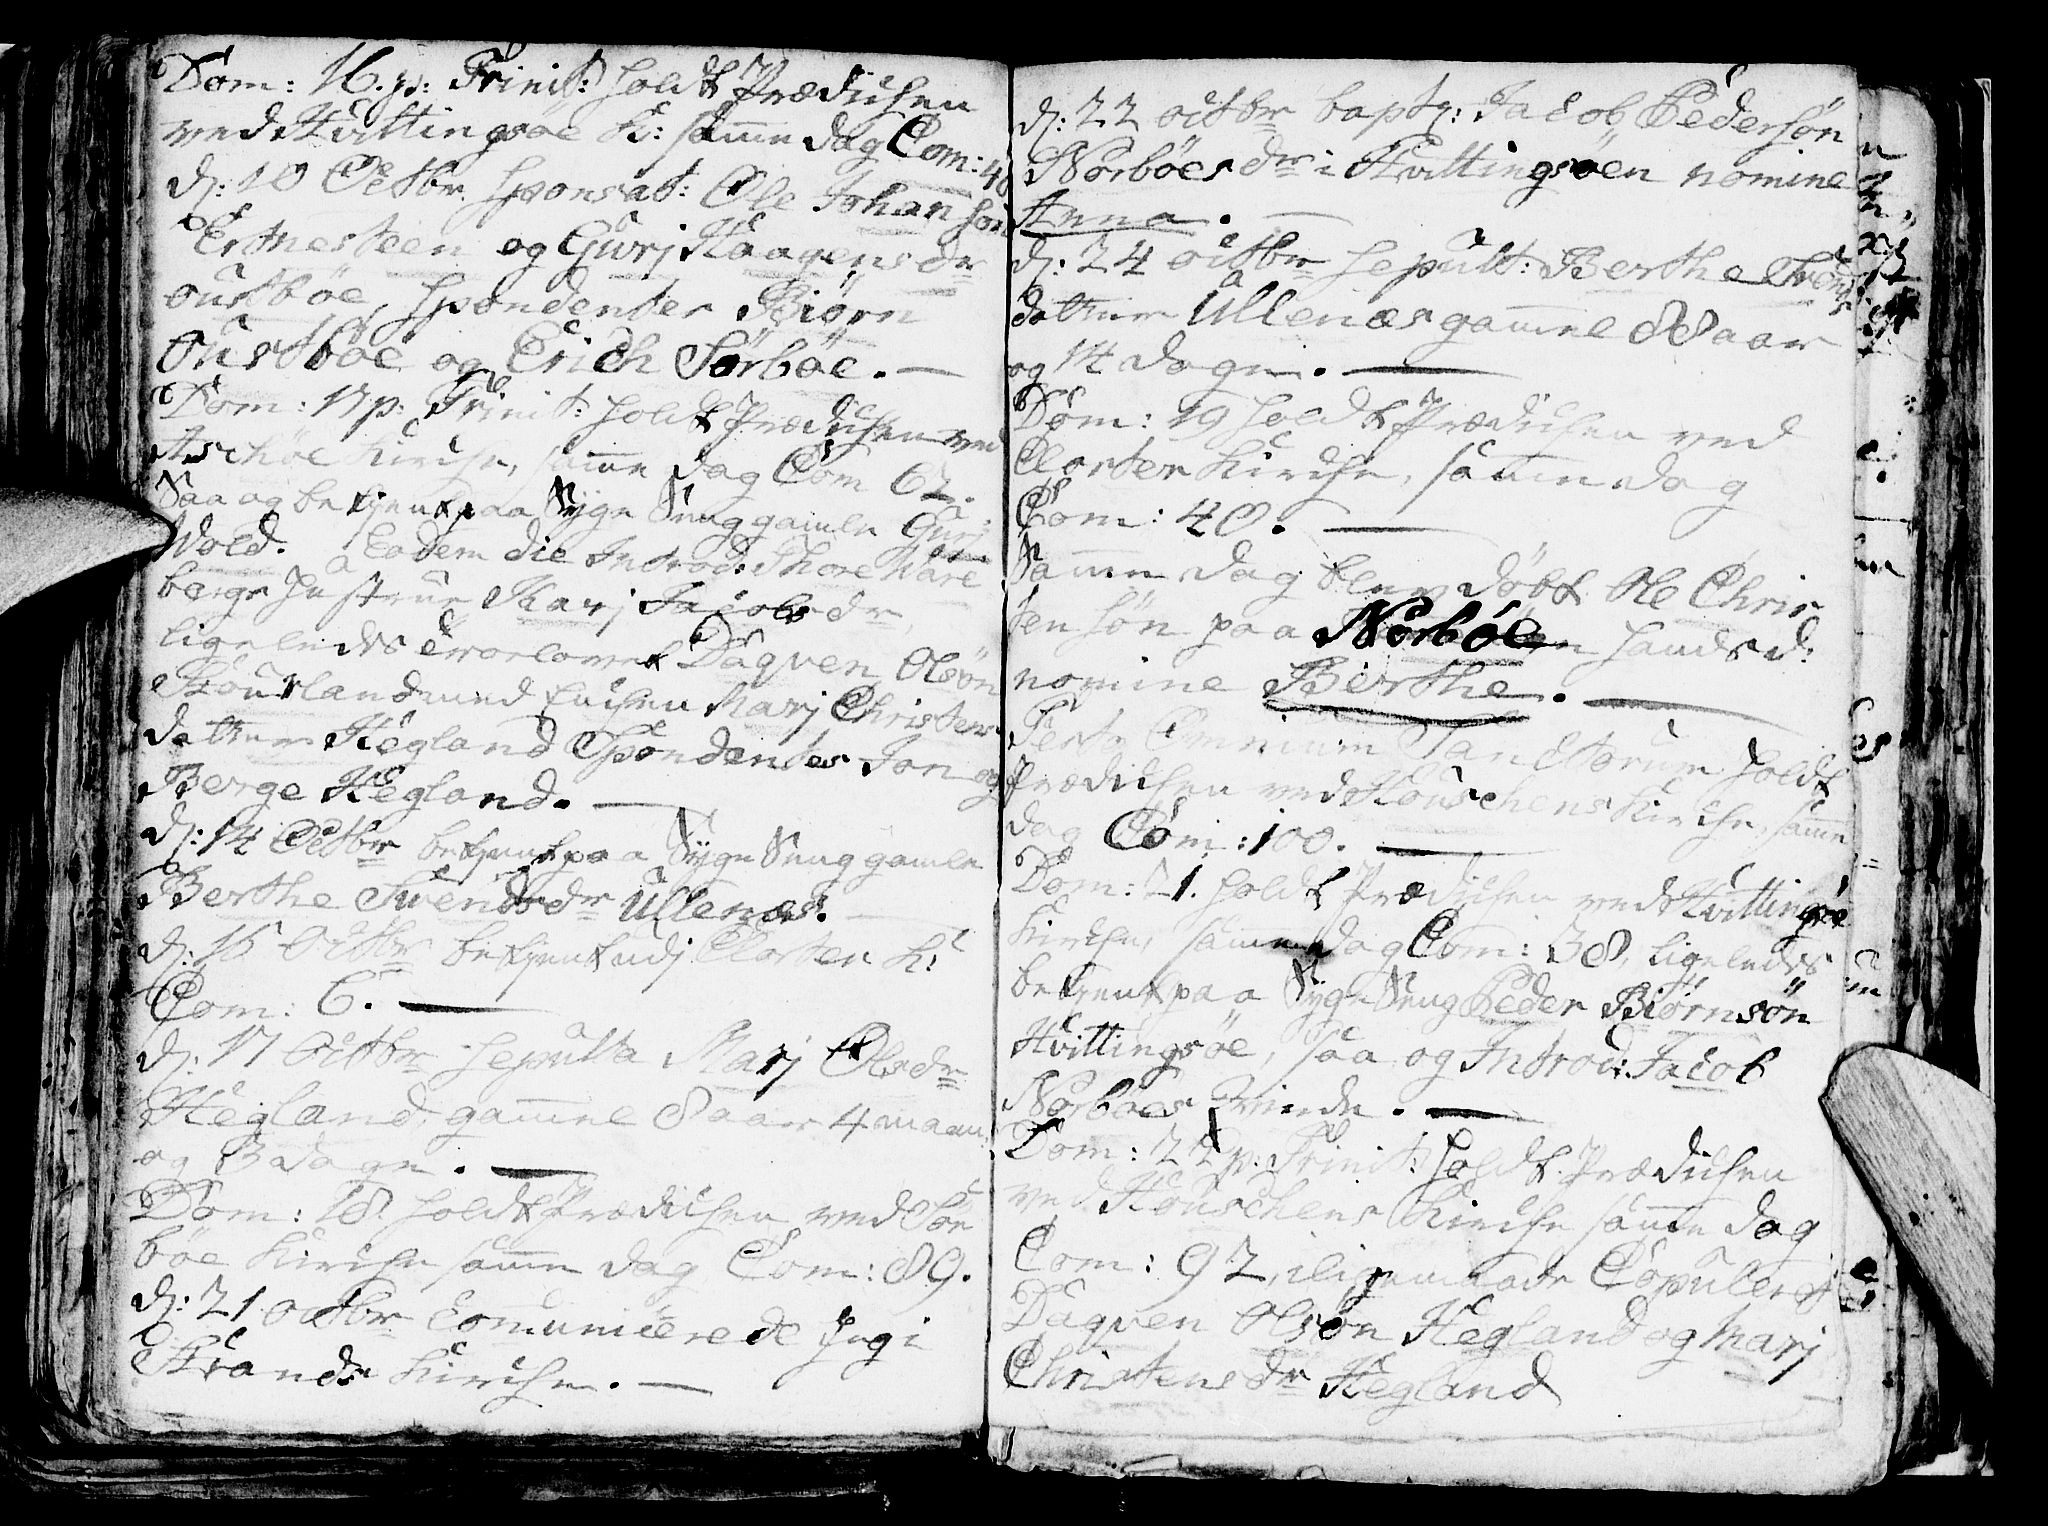 Dom: 16. p: Trinit: holdt Prædichen
ved Hvittingsöe K: samme dag Com: 40
d: 10 Octbr. sponsat: Ole Johansön
Ermesteen og Guri Haagensdr
oustböe, Spondenter Biörn
Oustböe og Erich Sörböe. —
Dom: 17 p: Trinit: holdt Prædichen ved
Aschöe Kirche, samme dag Com 62.
Saa og betient paa Syge Seng gamle Guri
Wold. Eodem die Introd: Thore Ware
bergs Hustrue Marj Jacobsdr
ligeledes trorlovet Dagven Olsön
Houvland med Enchen Marj Christens
datter Hegland Spondentes Jon og
Berge Hegland. —
d: 14 Octbr betient paa Syge Seng gamle
Berthe Svendsdr Ullenæs. —
d: 15 Octbr betient udj Closter K:
Com: 6. —
d: 17 Octbr sepulta Marj Olsdr
Hegland, gammel 8 aar 4 maan:
og 3 dage. —
Dom: 18. holdt Prædichen ved Sör
böe Kirche samme dag Com: 89.
d: 21 octbr Comunicerede Jeg i
Strands Kirche. —
d: 22 octbr baptz: Jacob Pedersön
Norböes dr i Hvittingsöen nomine
Anna. —
d: 24 octbr sepult: Berthe Svends
datter Ullenæs gammel 88 aar
og 14 dage. —
Dom: 19 holdt Prædichen ved
Closter Kirche, samme dag
Com: 40. —
Samme dag blev döbt Ole Chris
tensön paa Norböe hands d:
nomine Berthe. —
Festo Omnium Sanctorum holdt
Prædichen ved Houschens Kirche, samme
dag Com: 100. —
Dom: 21. holdt Prædichen ved Hvittingsöe
Kirche, samme dag Com: 38, ligeledes
betient paa Syge Seng Peder Biörnsön
Hvittingsöe, saa og Introd: Jacob
Norböes Qvinde. —
Dom: 22 p: Trinit: holdt Prædichen
ved Houschens Kirche samme dag
Com: 92, iligemaade Copulert
Dagven Olsön Hegland og Marj
Christensdr Hegland